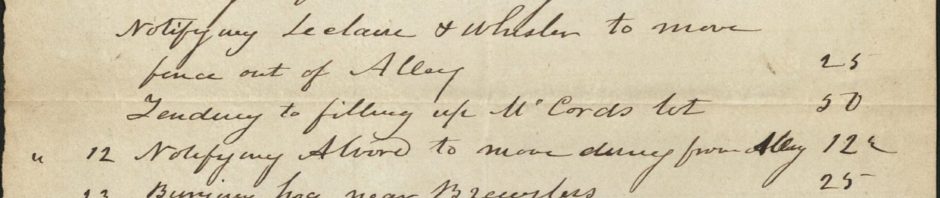 Notifying Leclaire & Whisler to move
fence out of Alley 25
Tending to filling up McCords lot 50
" 12 Notifying Alvord to move dung from Alley 12½
13 Burying hog near Brewsters 25